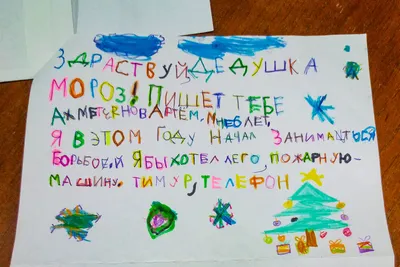 ЗДРАСТВУЙ ДЕДУШКА
МОРОЗ! ПИШЕТ ТЕБЕ
АРТЁМ. МНЕ 6 ЛЕТ,
Я В ЭТОМ ГОДУ НАЧАЛ ЗАНИМАТЬСЯ
БОРЬБОЙ, Я БЫ ХОТЕЛ ЛЕГО, ПОЖАРНУЮ-
МАШИНУ. ТИМУР, ТЕЛЕФОН